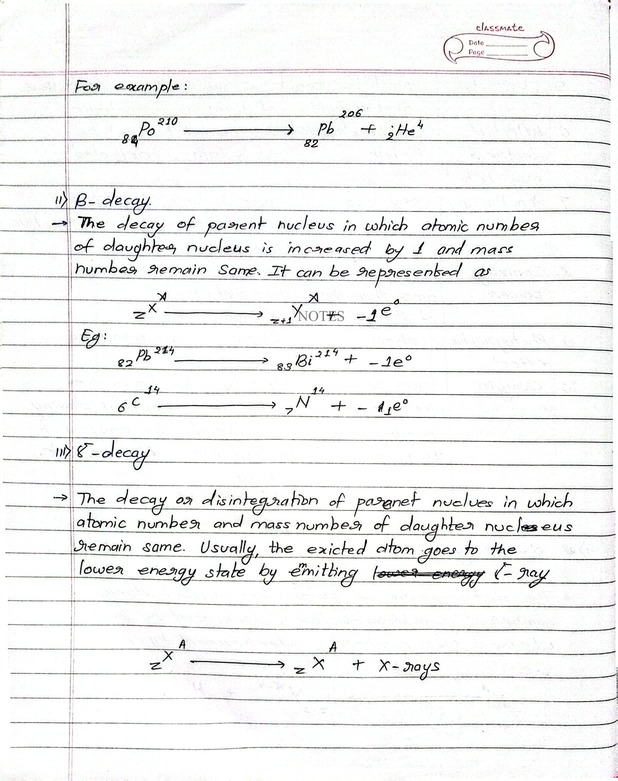 classmate
Date
Page
For example:
₈₄Po²¹⁰ ⟶ ₈₂Pb²⁰⁶ + ₂He⁴
II) β-decay.
→ The decay of parent nucleus in which atomic number
of daughter nucleus is increased by 1 and mass
number remain same. It can be represented as
zXᴬ ⟶ z+1Yᴬ + -1e⁰
NOTES
Eg:
₈₂Pb²¹⁴ ⟶ ₈₃Bi²¹⁴ + -1e⁰
₆C¹⁴ ⟶ ₇N¹⁴ + -1e⁰
III) γ-decay
→ The decay or disintegration of parenet nuclues in which
atomic number and mass number of daughter nucleus
remain same. Usually, the exicted atom goes to the
lower energy state by emitting lower energy γ-ray
zXᴬ ⟶ zXᴬ + X-rays